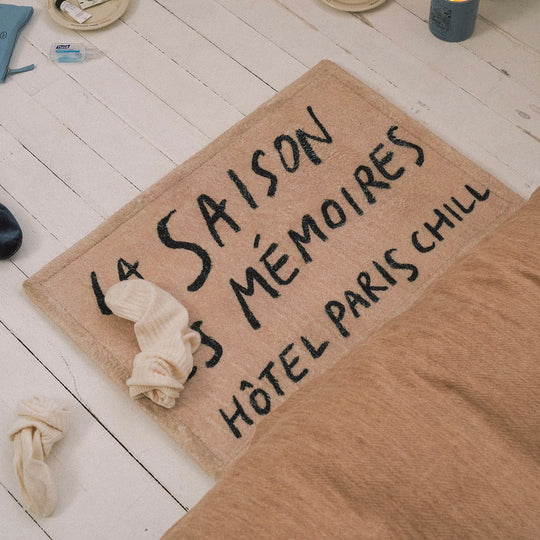 LA SAISON
MÉMOIRES
HÔTEL PARIS CHILL